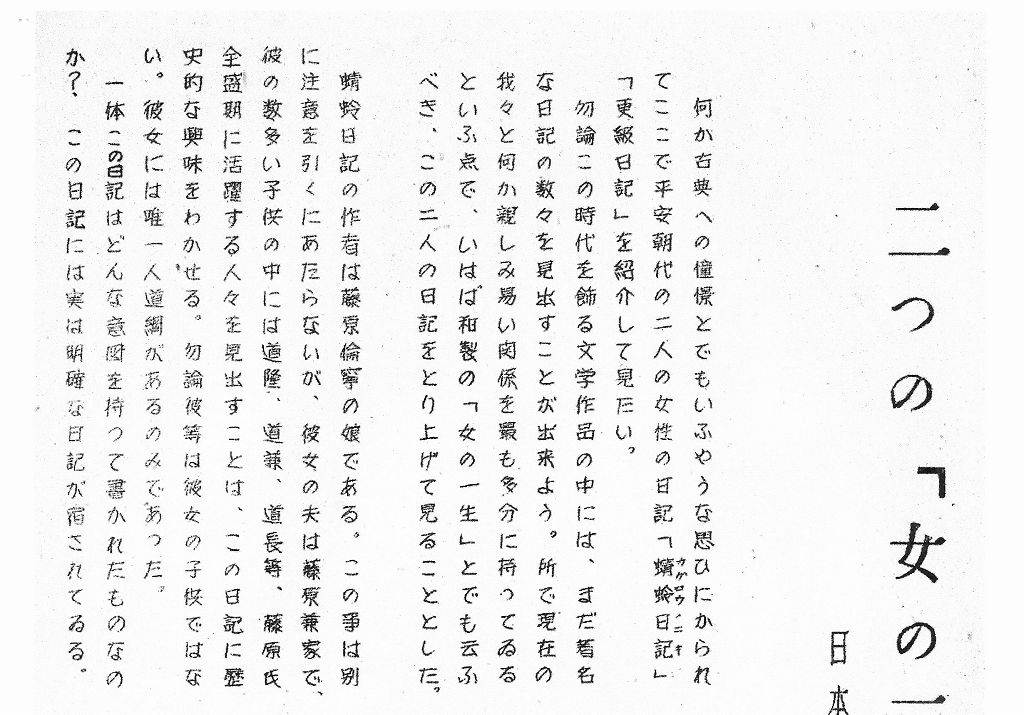 二つの「女の一
日本
何か古典への憧憬とでもいふやうな思ひにかられ
てここで平安朝代の二人の女性の日記「蜻蛉日記」
カゲロウニキ
「更級日記」を紹介して見たい。
勿論この時代を飾る文学作品の中には、まだ著名
な日記の数々を見出すことが出来よう。所で現在の
我々と何か親しみ易い関係を最も多分に持つてゐる
といふ点で、いはば和製の「女の一生」とでも云ふ
べき、この二人の日記をとり上げて見ることとした。
蜻蛉日記の作者は藤原倫寧の娘である。この事は別
に注意を引くにあたらないが、彼女の夫は藤原兼家で、
彼の数多い子供の中には道隆、道兼、道長等、藤原氏
全盛期に活躍する人々を見出すことは、この日記に歴
史的な興味をわかせる。勿論彼等は彼女の子供ではな
い。彼女には唯一人道綱があるのみであつた。
一体この日記はどんな意図を持つて書かれたものなの
か?、この日記には実は明確な日記が宿されてゐる。